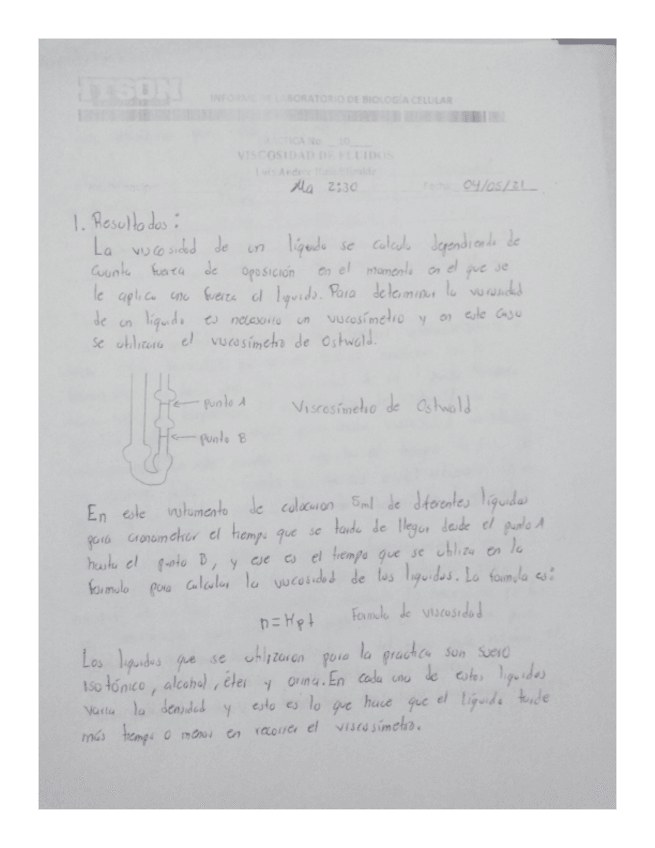 ITSON
INFORME DE LABORATORIO DE BIOLOGÍA CELULAR
PRACTICA No. 10
VISCOSIDAD DE FLUIDOS
Luis Andres
Ma 2:30 Fecha: 04/05/21
1. Resultados:
La viscosidad de un líquido se calcula dependiendo de
cuanta fuerza de oposición en el momento en el que se
le aplica una fuerza al liquido. Para determinar la viscosidad
de un líquido es necesario un viscosímetro y en este caso
se utilizara el viscosímetro de Ostwald.
punto A
Viscosímetro de Ostwald
punto B
En este instumento de colocaron 5ml de diferentes líquidos
para cronometrar el tiempo que se tarda de llegar desde el punto A
hasta el punto B, y ese es el tiempo que se utiliza en la
formula para calcular la viscosidad de los liquidos. La formula es:
n=Kρt Formula de viscosidad
Los liquidos que se utilizaron para la practica son suero
isotónico, alcohol, éter y orina. En cada uno de estos liquidos
varia la densidad y esto es lo que hace que el líquido tarde
más tiempo o menos en recorrer el viscosímetro.